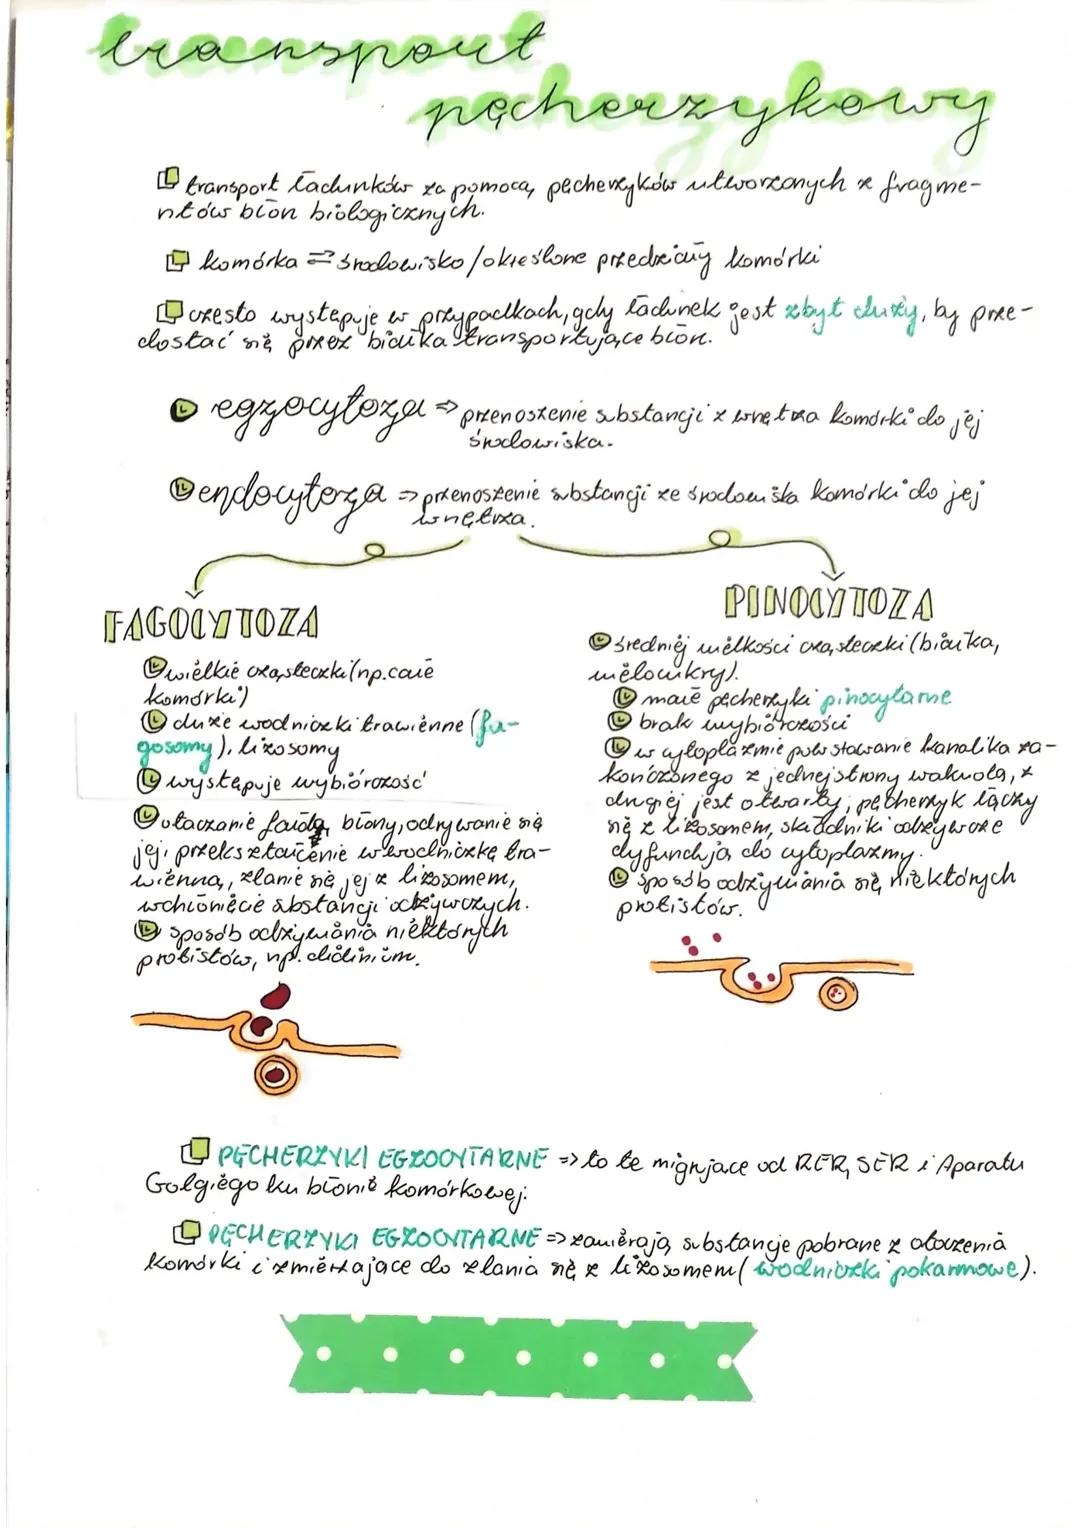 transport
pęcherzykowy
transport ładunków za pomocą pęcherzyków utworzonych z fragme-
ntów błon biologicznych.
komórka ⇄ środowisko/określone przedziały komórki
często występuje w przypadkach, gdy ładunek jest zbyt duży, by prze-
dostać się przez białka transportujące błon.
egzocytoza ⇒ przenoszenie substancji z wnętrza komórki do jej
środowiska.
endocytoza ⇒ przenoszenie substancji ze środowiska komórki do jej
wnętrza.
FAGOCYTOZA
wielkie cząsteczki (np. całe
komórki)
duże wodniczki trawienne (fa-
gosomy), lizosomy
występuje wybiórczość
otaczanie fałdą błony, odrywanie się
jej, przekształcenie w wodniczkę tra-
wienną, zlanie się jej z lizosomem,
wchłonięcie substancji odżywczych.
sposób odżywiania niektórych
protistów, np. didinium.
PINOCYTOZA
średniej wielkości cząsteczki (białka,
wielocukry).
małe pęcherzyki pinocytarne
brak wybiórczości
w cytoplazmie powstawanie kanalika za-
kończonego z jednej strony wakuolą, z
drugiej jest otwarty; pęcherzyk łączy
się z lizosomem, składniki odżywcze
dyfundują do cytoplazmy.
sposób odżywiania się niektórych
protistów.
PĘCHERZYKI EGZOCYTARNE => to te migrujące od RER, SER i Aparatu
Golgiego ku błonie komórkowej.
PĘCHERZYKI EGZOCYTARNE => zawierają substancje pobrane z otoczenia
komórki i zmierzające do zlania się z lizosomem (wodniczki pokarmowe).